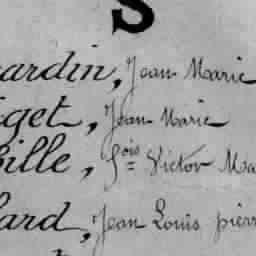 S
ardin, Jean Marie
get, Jean Marie
ille, fois Victor Ma
ard, Jean Louis pierr